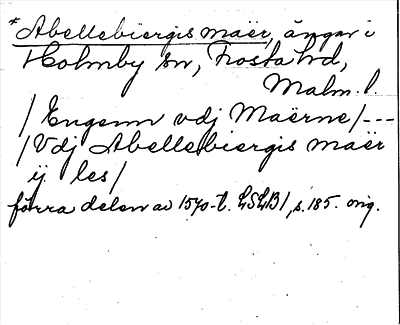 *Abellebiergis maër, ängar i
Holmby sn, Frosta hd,
Malm. l.
/ Engenn vdj Maërne /---
/ Vdj Abellebiergis maër
ij les /
förra delen av 1570-t. LSLB1, s. 185. orig.